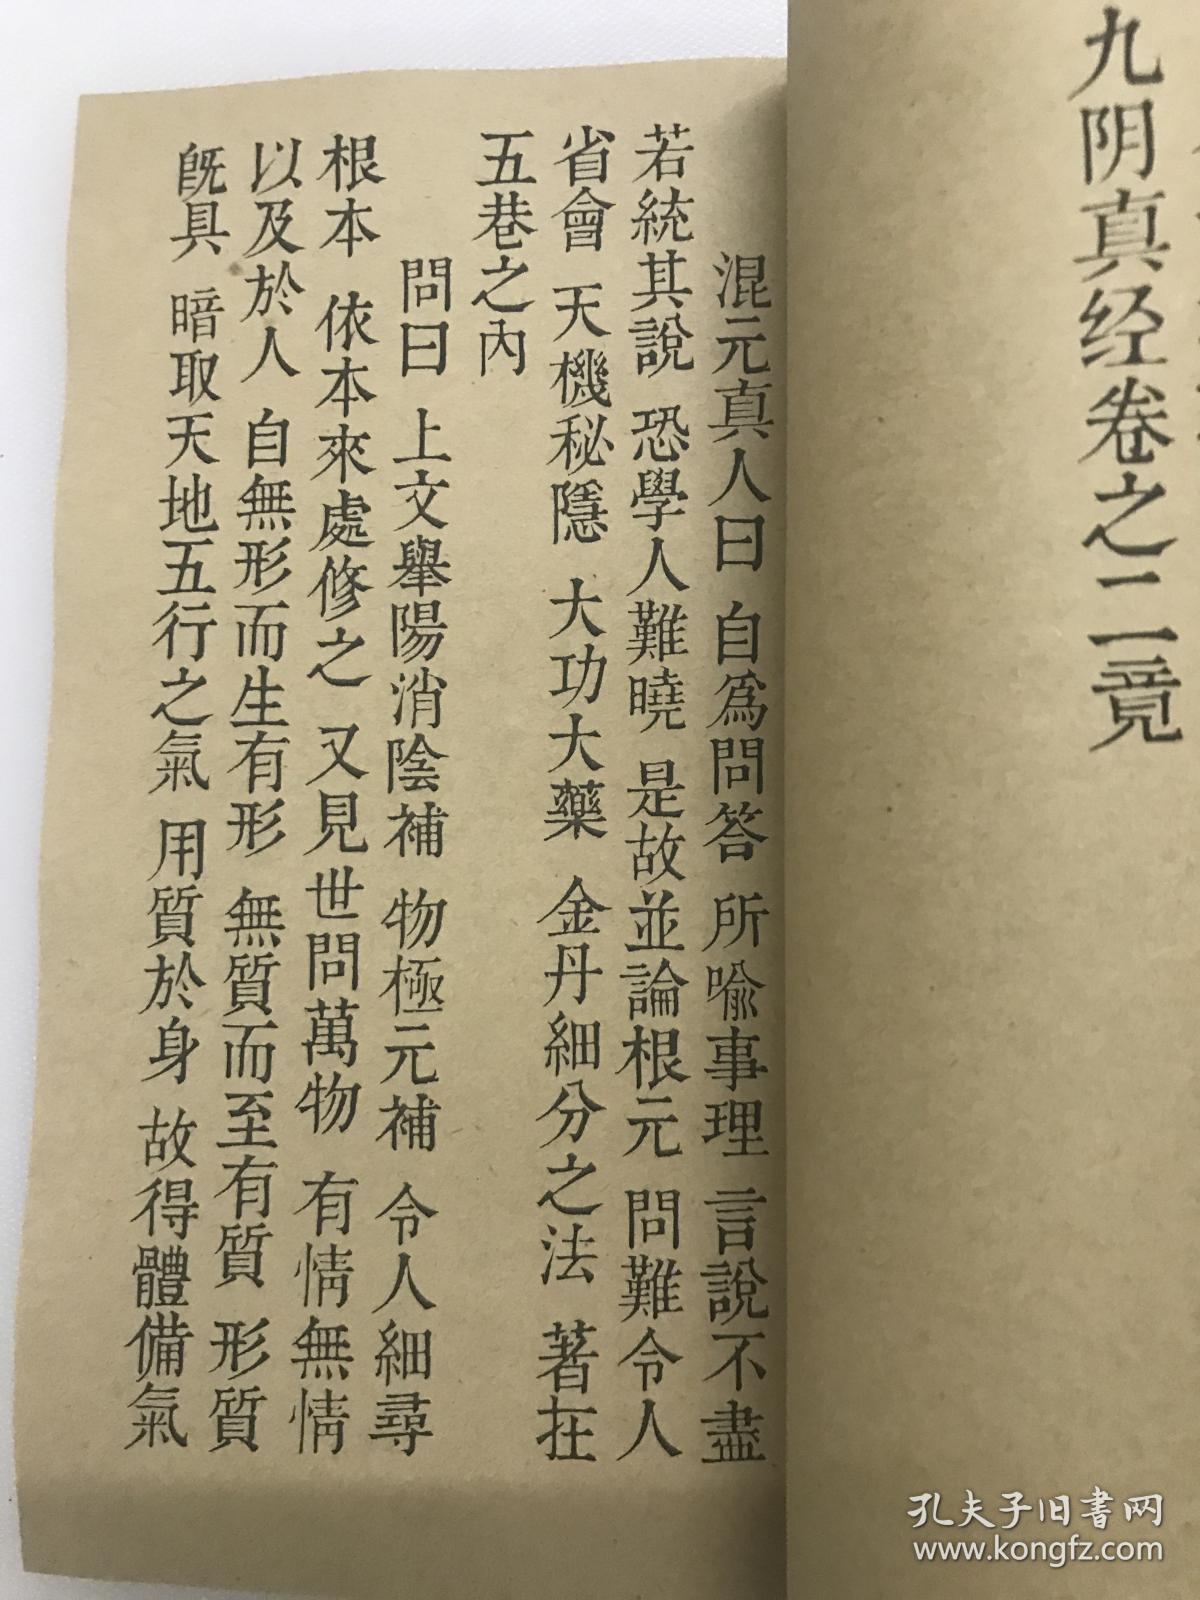 九阴真经卷之二竟
混元真人曰 自爲問答 所喩事理 言說不盡
若統其說 恐學人難曉 是故並論根元 問難令人
省會 天機秘隱 大功大藥 金丹細分之法 著在
五巷之內
問曰 上文舉陽消陰補 物極元補 令人細尋
根本 依本來處修之 又見世問萬物 有情無情
以及於人 自無形而生有形 無質而至有質 形質
旣具 暗取天地五行之氣 用質於身 故得體備氣
孔夫子旧书网
www.kongfz.com